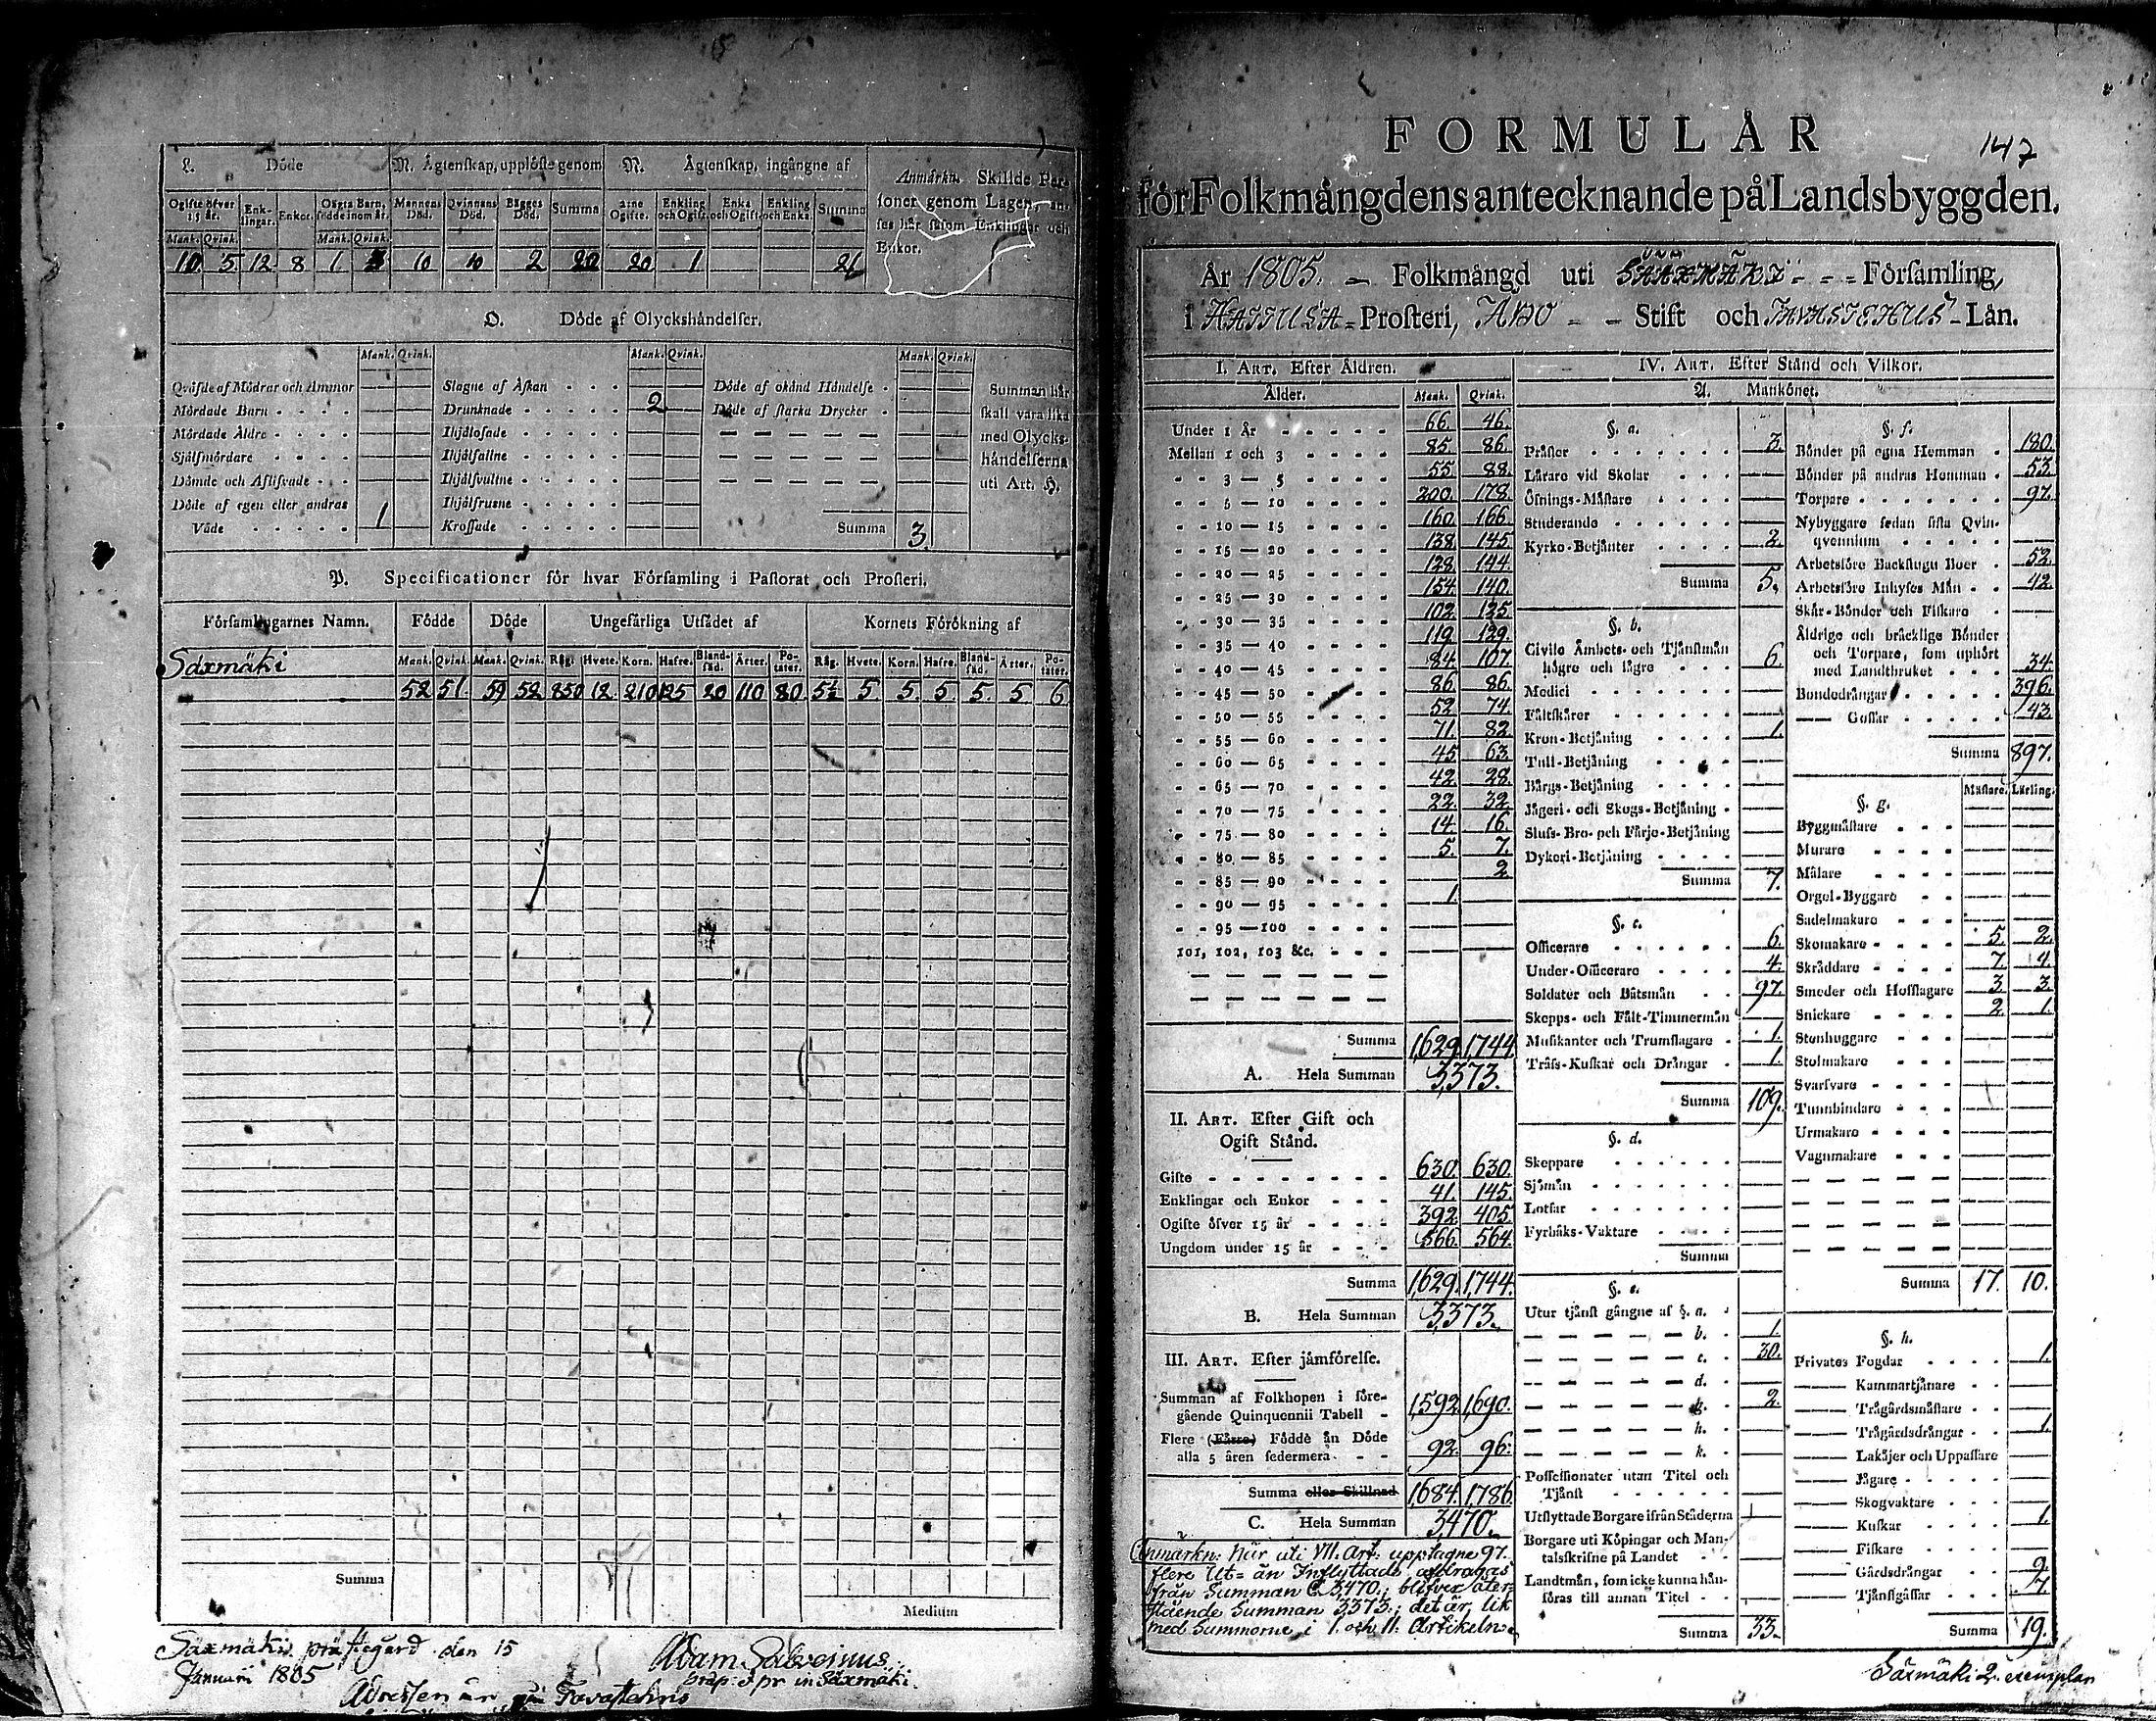 L. Döde
N. Ägtenskap, upplöste genom
N. Ägtenskap, ingångne af
Anmärkn. Skillde Per-
soner genom Lagen, an-
ses här såsom Enklingar och
Enkor.
Ogifte öfver 15 år. Enk-lingar. Enkor. Oägta Barn, födde inom år. Mannens Död. Qvinnans Död. Bägges Död. Summa Ogifte. Enkling och Ogift. Enka och Ogift. Enkling och Enka. Summa
Mank. Qvink. Mank. Qvink.
10. 5. 12. 8 1. 10 10 2 20 20 1 21
O. Döde af Olyckshändelser.
Mank. Qvink. Mank. Qvink. Mank. Qvink.
Qväfde af Mödrar och Ammor Slagne af Åskan Döde af okänd Händelse Summan här
Mördade Barn Drunknade 2 Döde af starka Drycker skall vara lika
Mördade Äldre Ihjälosade med Olycks-
Sjelfmördare Ihjälfallne händelserna
Dömde och Aflifvade Ihjälsvultne uti Art. H.
Döde af egen eller andras Ihjälfrusne
Våde 1 Krossade Summa 3.
P. Specificationer för hvar Församling i Pastorat och Prosteri.
Församlingarnes Namn. Födde Döde Ungefärliga Utsädet af Kornets Förökning af
Mank. Qvink. Mank. Qvink. Råg. Hvete. Korn. Hafre. Bland-säd. Ärter. Po-tater. Råg. Hvete. Korn. Hafre. Bland-säd. Ärter. Po-tater.
Säxmäki
52 51. 59 52 850 12 210 125 20 110 80 5½ 5. 5. 5. 5. 5. 6
Summa
Medium
Säxmäki prästegård den 15
Januari 1805
Adam
præp: & pr in Säxmäki.
Adressen är på Tavastehus
FORMULÄR
147
för Folkmängdens antecknande på Landsbyggden.
År 1805. Folkmängd uti SÄÄXMÄKI Församling,
i HATTULA Prosteri, ÅBO Stift och TAVASTEHUS Län.
I. ART. Efter Åldren.
Ålder. Mank. Qvink.
Under 1 År 66. 46.
Mellan 1 och 3 85. 86.
3 — 5 55. 88.
5 — 10 200. 178.
10 — 15 160. 166.
15 — 20 138. 145.
20 — 25 128. 144.
25 — 30 154. 140.
30 — 35 102. 125.
35 — 40 119. 129.
40 — 45 84. 107.
45 — 50 86. 86.
50 — 55 52. 74.
55 — 60 71. 82.
60 — 65 45. 63.
65 — 70 42. 28.
70 — 75 22. 32.
75 — 80 14. 16.
80 — 85 5. 7.
85 — 90 2.
90 — 95 1.
95 — 100
101, 102, 103 &c.
Summa 1,629. 1,744.
A. Hela Summan 3,373.
II. ART. Efter Gift och
Ogift Stånd.
Gifte 630. 630.
Enklingar och Enkor 41. 145.
Ogifte öfver 15 år 392. 405.
Ungdom under 15 år 566. 564.
Summa 1,629. 1,744.
B. Hela Summan 3,373.
III. ART. Efter jämförelse.
Summan af Folkhopen i före-
gående Quinquennii Tabell 1,592. 1,690.
Flere (Färre) Födde än Döde
alla 5 åren sedermera 92. 96.
Summa eller Skillnad 1,684. 1,786.
C. Hela Summan 3,470.
Anmärkn: När uti VII. Art: upptagne 97.
flere Ut= än Inflyttade afdragas
från Summan C. 3,470.; blifver åter-
stående Summan 3,373.; det är, lik
med Summorne i I. och II. Artikeln.
IV. ART. Efter Stånd och Vilkor.
A. Mankönet.
§. a.
Präster 3.
Lärare vid Skolar
Öfnings-Mästare
Studerande
Kyrko-Betjänter 2.
Summa 5.
§. b.
Civile Ämbets- och Tjänstmän
högre och lägre 6.
Medici
Fältskärer
Kron-Betjäning 1.
Tull-Betjäning
Bärgs-Betjäning
Jägeri- och Skogs-Betjäning
Sluss- Bro- och Färjo-Betjäning
Dykeri-Betjäning
Summa 7.
§. c.
Officerare 6.
Under-Officerare 4.
Soldater och Båtsmän 97.
Skepps- och Fält-Timmermän
Musikanter och Trumslagare 1.
Träss-Kuskar och Drängar 1.
Summa 109.
§. d.
Skeppare
Sjömän
Lotsar
Fyrbåks-Vaktare
Summa
§. e.
Utur tjänst gångne af §. a.
b. 1.
c. 30.
d.
g. 2.
h.
k.
Possessionater utan Titel och
Tjänst
Utflyttade Borgare ifrån Städerna
Borgare uti Köpingar och Man-
talsskrifne på Landet
Landtmän, som icke kunna hän-
föras till annan Titel
Summa 33.
§. f.
Bönder på egna Hemman 180.
Bönder på andras Hemman 53.
Torpare 97.
Nybyggare sedan sista Qvin-
qvennium
Arbetsföre Backstugu Boer 52.
Arbetsföre Inhyses Män 42.
Skär-Bönder och Fiskare
Åldrige och bräcklige Bönder
och Torpare, som uphört
med Landtbruket 34.
Bondedrängar 396.
— Gossar 43.
Summa 897.
Mästare. Lärling.
§. g.
Byggmästare
Murare
Målare
Orgel-Byggare
Sadelmakare
Skomakare 5. 2.
Skräddare 7. 4.
Smeder och Hofslagare 3. 3.
Snickare 2. 1.
Stenhuggare
Stolmakare
Svarfvare
Tunnbindare
Urmakare
Vagnmakare
Summa 17. 10.
§. h.
Privates Fogdar 1.
— Kammartjänare
— Trägårdsmästare
— Trägårdsdrängar 1.
— Lakäjer och Uppassare
— Jägare
— Skogvaktare
— Kuskar 1.
— Fiskare
— Gårdsdrängar 9.
— Tjänstgässar 7.
Summa 19.
Säxmäki 2. exemplar